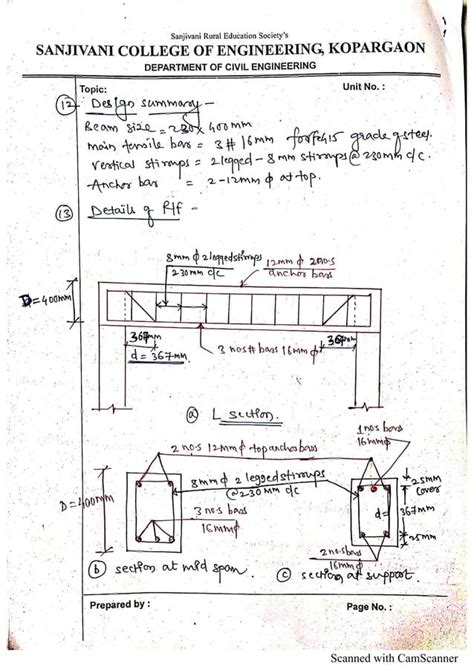 Sanjivani Rural Education Society's
SANJIVANI COLLEGE OF ENGINEERING, KOPARGAON
DEPARTMENT OF CIVIL ENGINEERING
Topic: Unit No. :
(12) Design summary -
Beam size = 230 x 400mm
main tensile bar = 3 # 16mm for fe415 grade of steel.
vertical stirrups = 2 legged - 8 mm stirrups @ 230mm c/c.
Anchor bar = 2 - 12mm ϕ at top.
(13) Details of R/f -
8mm ϕ 2 legged stirrups
230 mm c/c
12mm ϕ 2 no.s
anchor bars
D = 400mm
367mm
d = 367mm
367mm
3 nos # bars 16mm ϕ
(a) L section.
1 no.s bars
16mm ϕ
2 no.s 12mm ϕ top anchor bars
8mm ϕ 2 legged stirrups
@ 230 mm c/c
25mm
cover
D = 400mm
3 no.s bars
16mm ϕ
d = 367mm
25mm
2 no.s bars
16mm ϕ
(b) section at mid span.
(c) section at support.
Prepared by : Page No. :
Scanned with CamScanner